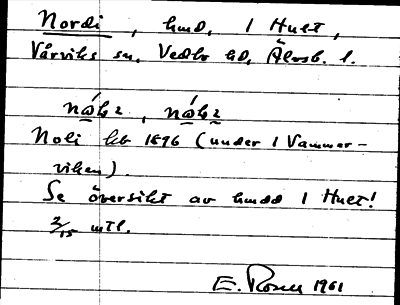 Nordi, hmd, 1 Hult,
Vårviks sn, Vedbo hd, Älvsb. l.
Noli kb 1896 (under 1 Vammer-
viken).
Se översikt av hmdd 1 Hult!
2/15 mtl.
E. Rosen 1961